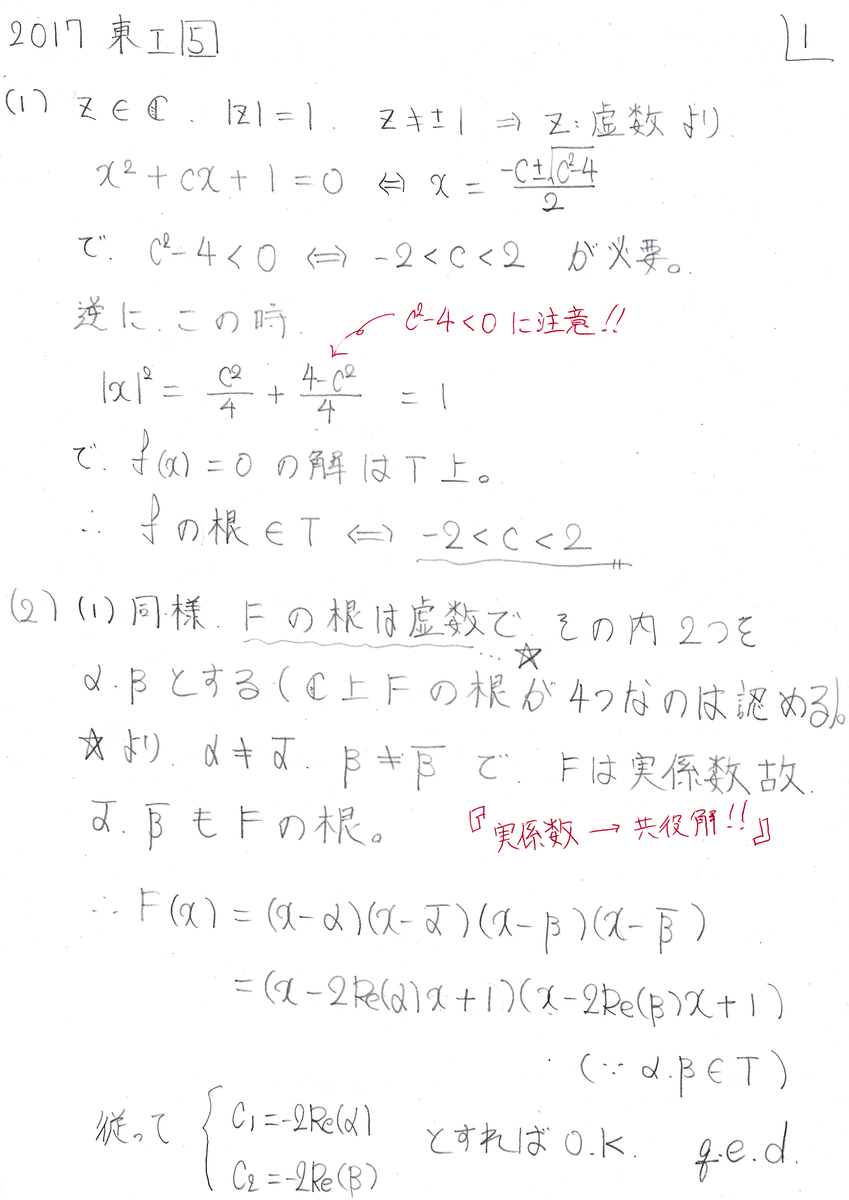 2017 東工 5 1
(1) z ∈ ℂ. |z| = 1. z ≠ ±1 ⇒ z: 虚数 より.
x² + cx + 1 = 0 ⇔ x = (-c±√(c²-4))/2
で. c² - 4 < 0 ⇔ -2 < c < 2 が必要。
逆に. この時. c²-4<0 に注意!!
|x|² = c²/4 + (4-c²)/4 = 1
で. f(x) = 0 の解はT上。
∴ fの根 ∈ T ⇔ -2 < c < 2
(2) (1)同様. Fの根は虚数で. その内2つを
…☆
α.βとする(ℂ上Fの根が4つなのは認める)。
☆より. α ≠ ᾱ. β ≠ β̄ で. Fは実係数故.
ᾱ. β̄ もFの根。 『実係数 → 共役解!!』
∴ F(x) = (x-α)(x-ᾱ)(x-β)(x-β̄)
= (x-2Re(α)x+1)(x-2Re(β)x+1)
(∵ α.β ∈ T)
従って { C₁=-2Re(α) とすればO.K. q.e.d.
C₂=-2Re(β)